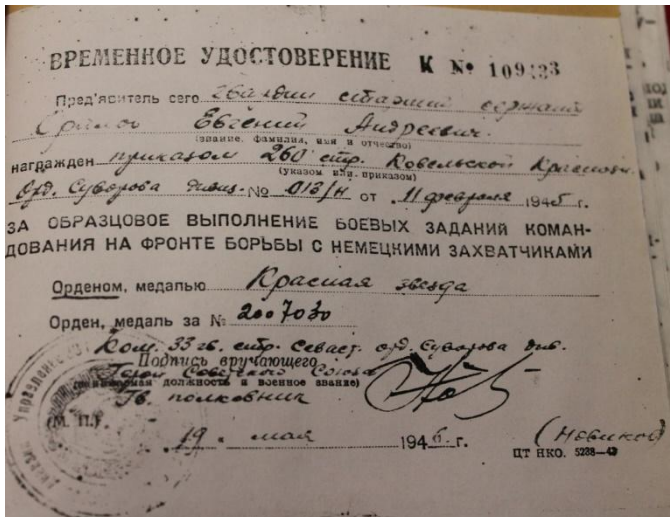 ВРЕМЕННОЕ УДОСТОВЕРЕНИЕ К № 109433
Пред'явитель сего гвардии старший сержант
Евгений Андреевич
(звание, фамилия, имя и отчество)
награжден приказом 260 стр. Ковельской Краснозн.
(указом или приказом)
Орд. Суворова дивиз. № 013/н от 11 февраля 1945 г.
ЗА ОБРАЗЦОВОЕ ВЫПОЛНЕНИЕ БОЕВЫХ ЗАДАНИЙ КОМАН-
ДОВАНИЯ НА ФРОНТЕ БОРЬБЫ С НЕМЕЦКИМИ ЗАХВАТЧИКАМИ
Орденом, медалью Красная звезда
Орден, медаль за № 2007030
Ком. 33 гв. стр. Севаст. орд. Суворова див.
Подпись вручающего
Герой Советского Союза
(занимаемая должность и военное звание)
Гв. полковник
(М. П.)
19 мая 1946 г.
(Новиков)
ЦТ НКО. 5238—43